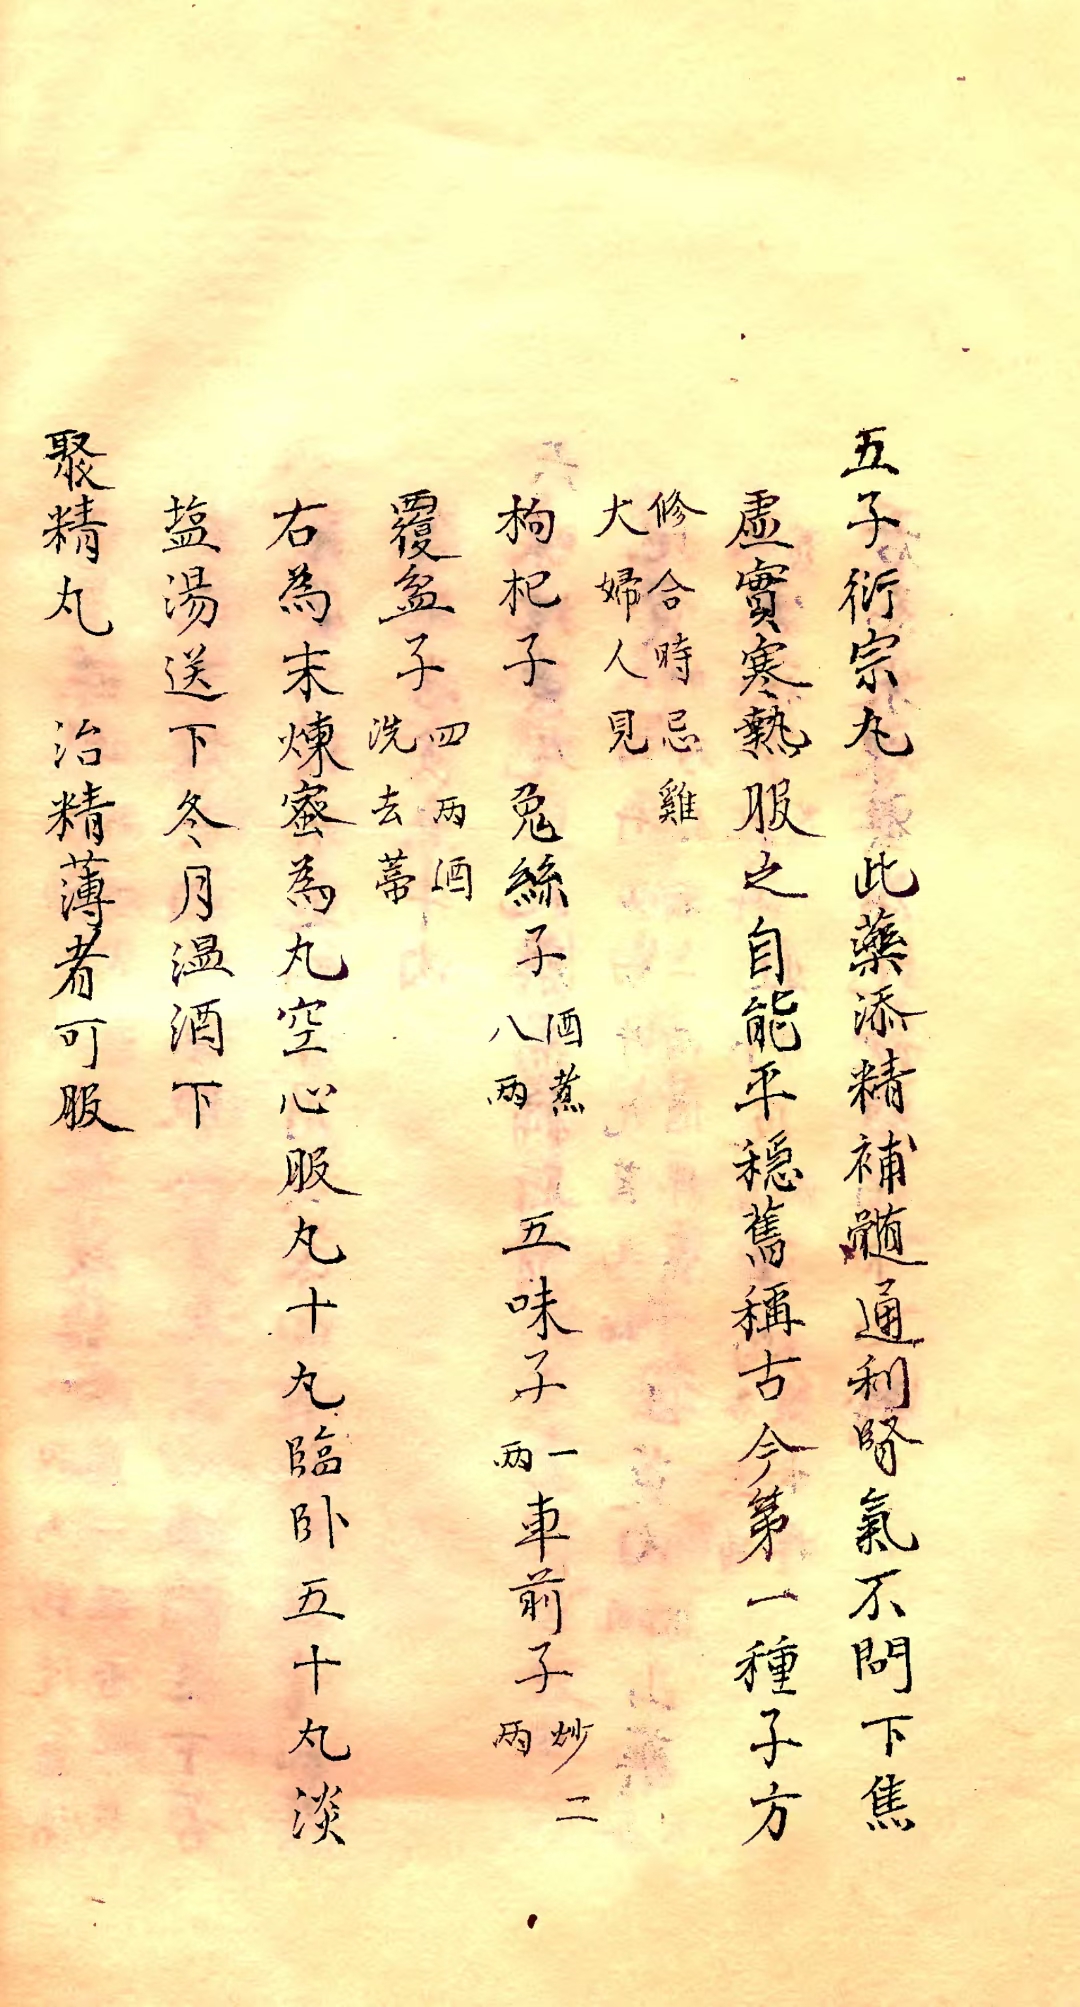 五子衍宗丸　此藥添精補髓通利腎氣不問下焦
虛實寒熱服之自能平穩舊稱古今第一種子方
修合時忌雞
犬婦人見
枸杞子　兔絲子酒煮八兩　五味子一兩車前子炒二兩
覆盆子四兩酒洗去蒂
右為末煉蜜為丸空心服丸十丸臨卧五十丸淡
塩湯送下冬月温酒下
聚精丸　治精薄者可服